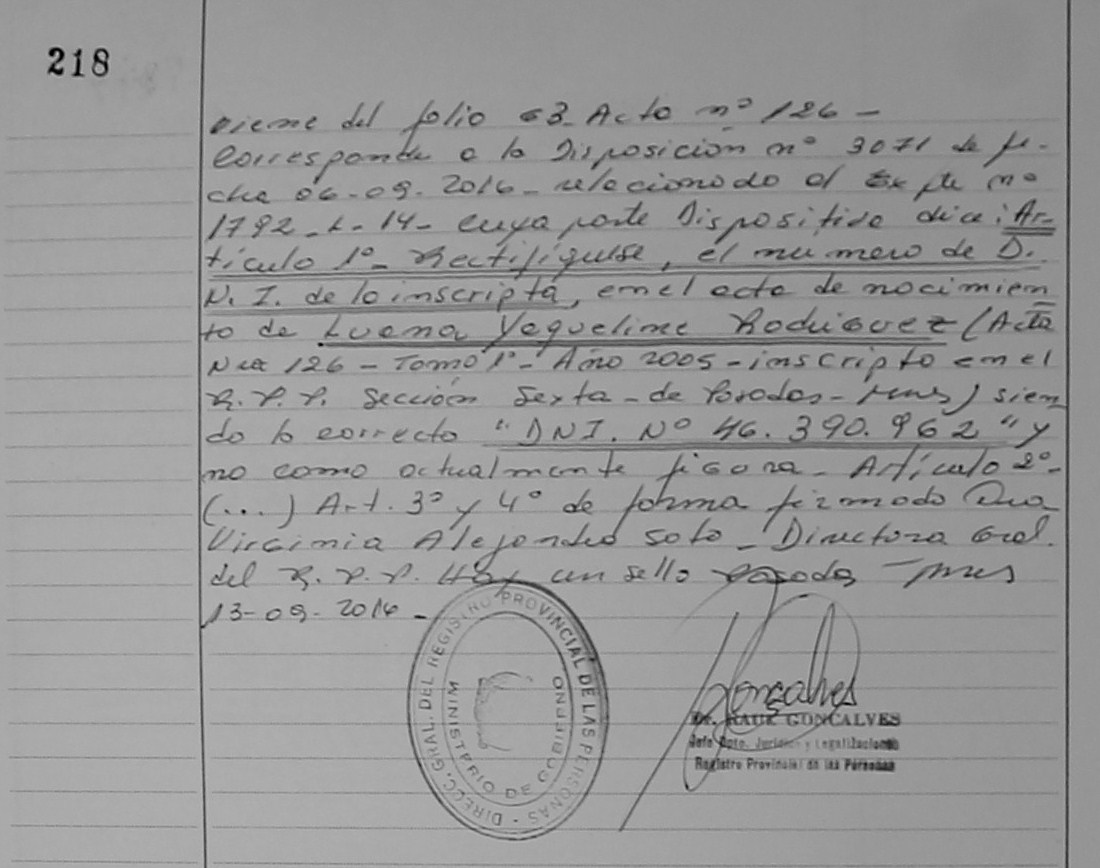 218
viene del folio 63- Acta nº 126 -
Corresponde a la Disposición nº 3071 de fe-
cha 06-09-2016- relacionado al Expte nº
1792-L-14- cuya parte Dispositiva dice: Ar-
tículo 1º- Rectifíquese, el numero de D.
N. I. de la inscripta, en el acta de nacimien
to de Luana Yaqueline Rodriguez (Acta
Nº 126 - Tomo 1º- Año 2005 - inscripta en el
R. P. P. Sección Sexta - de Posadas - Mnes) sien
do lo correcto "DNI. Nº 46.390.962" y
no como actualmente figura- Artículo 2º-
(...) Art. 3º y 4º de forma firmado Dra
Virginia Alejandra Soto - Directora Gral.
del R. P. P. Hay un sello Posadas - Mnes
13-09-2016 -
DIRECC. GRAL. DEL REGISTRO PROVINCIAL DE LAS PERSONAS -
MINISTERIO DE GOBIERNO
Gonçalves
Dr. RAUL GONCALVES
Jefe Dpto. Jurídico y Legalizaciones
Registro Provincial de las Personas